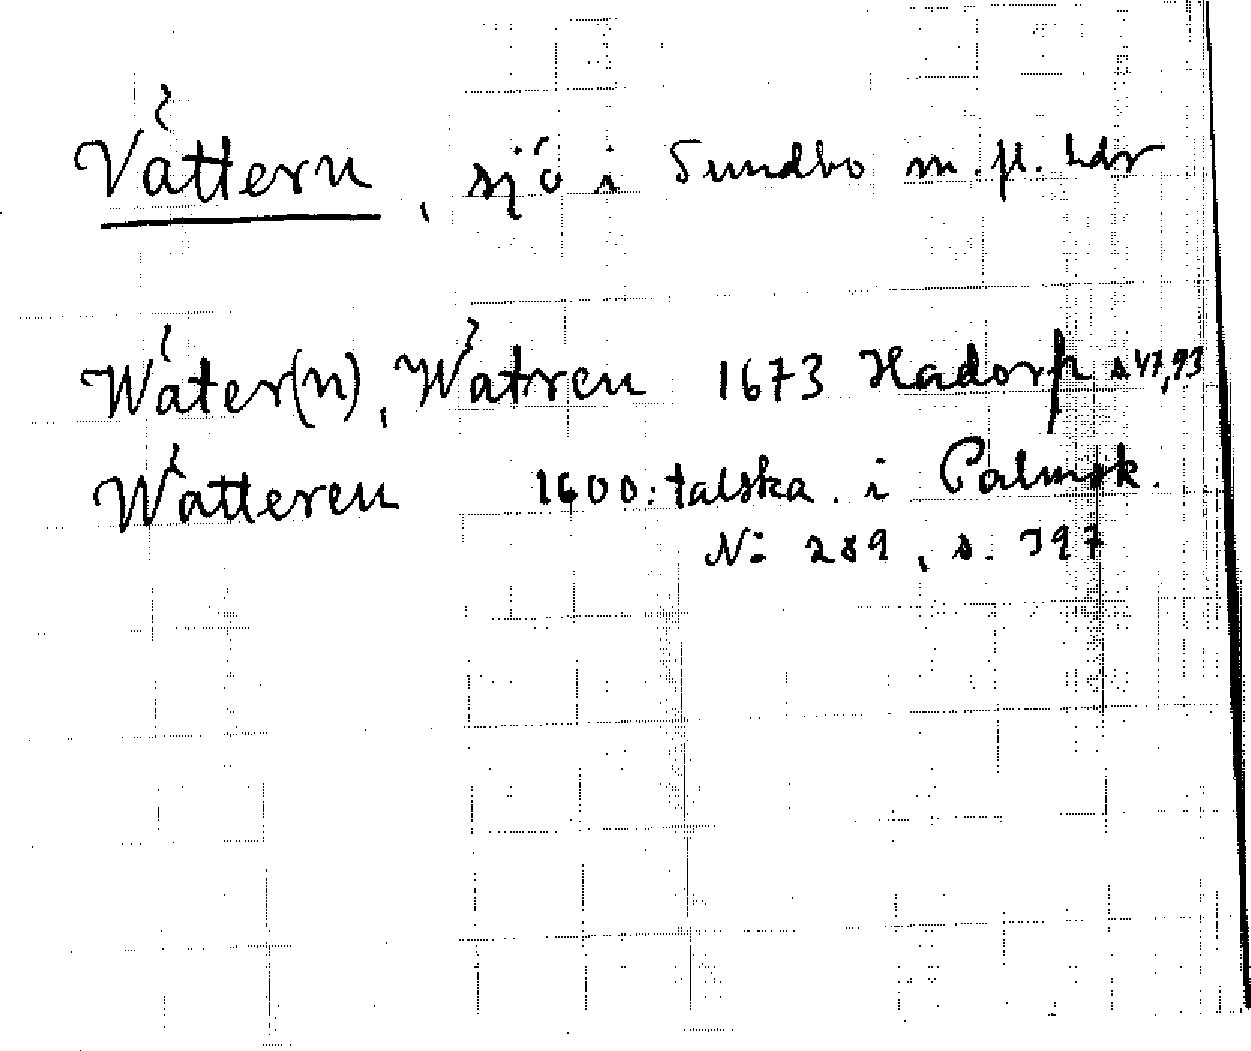 Vättern, sjö i Sundbo m. fl. hdr
Wäter(n), Wätren 1673 Hadorph s 47, 93
Wätteren 1600-talska. i Palmsk.
N: 289, s. 397